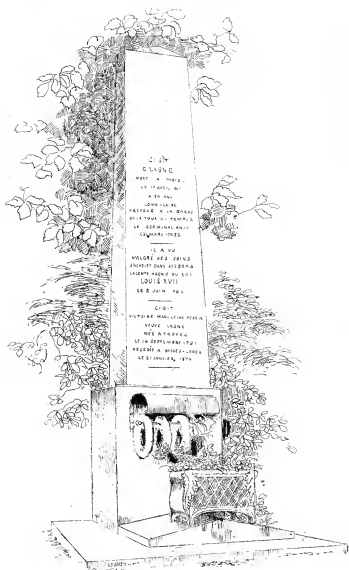 CI GÎT
E LASNE
MORT A PARIS
LE 17 AVRIL
A 70 ANS
PRÉPOSÉ A LA GARDE
DE LA TOUR DU TEMPLE
LE GERMINAL AN III
MARS
IL A VU
MALGRÉ SES SOINS
S'ACHEVER DANS SES BRAS
LA LENTE AGONIE DU ROI
LOUIS XVII
LE 8 JUIN 795
CI GIT
VICTOIRE MADELEINE
VEUVE LASNE
NÉE A TROYES
LE 14 SEPTEMBRE 1781
DÉCÉDÉE A
LE 21 JANVIER